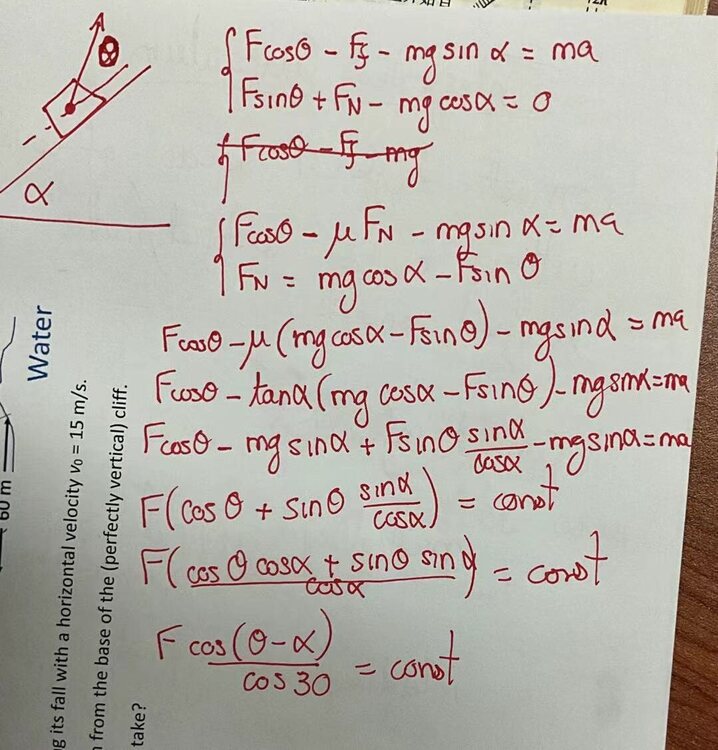 θ
α
Fcosθ - Ff - mg sin α = ma
Fsinθ + FN - mg cosα = 0
Fcosθ - Ff - mg
Fcosθ - μ FN - mg sin α = ma
FN = mg cos α - Fsin θ
Fcosθ - μ(mg cosα - Fsinθ) - mg sinα = ma
Fcosθ - tanα(mg cosα - Fsinθ) - mg sinα = ma
Fcosθ - mg sinα + Fsinθ sinα/cosα - mg sinα = ma
F(cos θ + sinθ sinα/cosα) = const
F(cos θ cosα + sinθ sinα)/cosα = const
F cos(θ-α)/cos 30 = const
Water
60 m
its fall with a horizontal velocity v0 = 15 m/s.
from the base of the (perfectly vertical) cliff.
take?